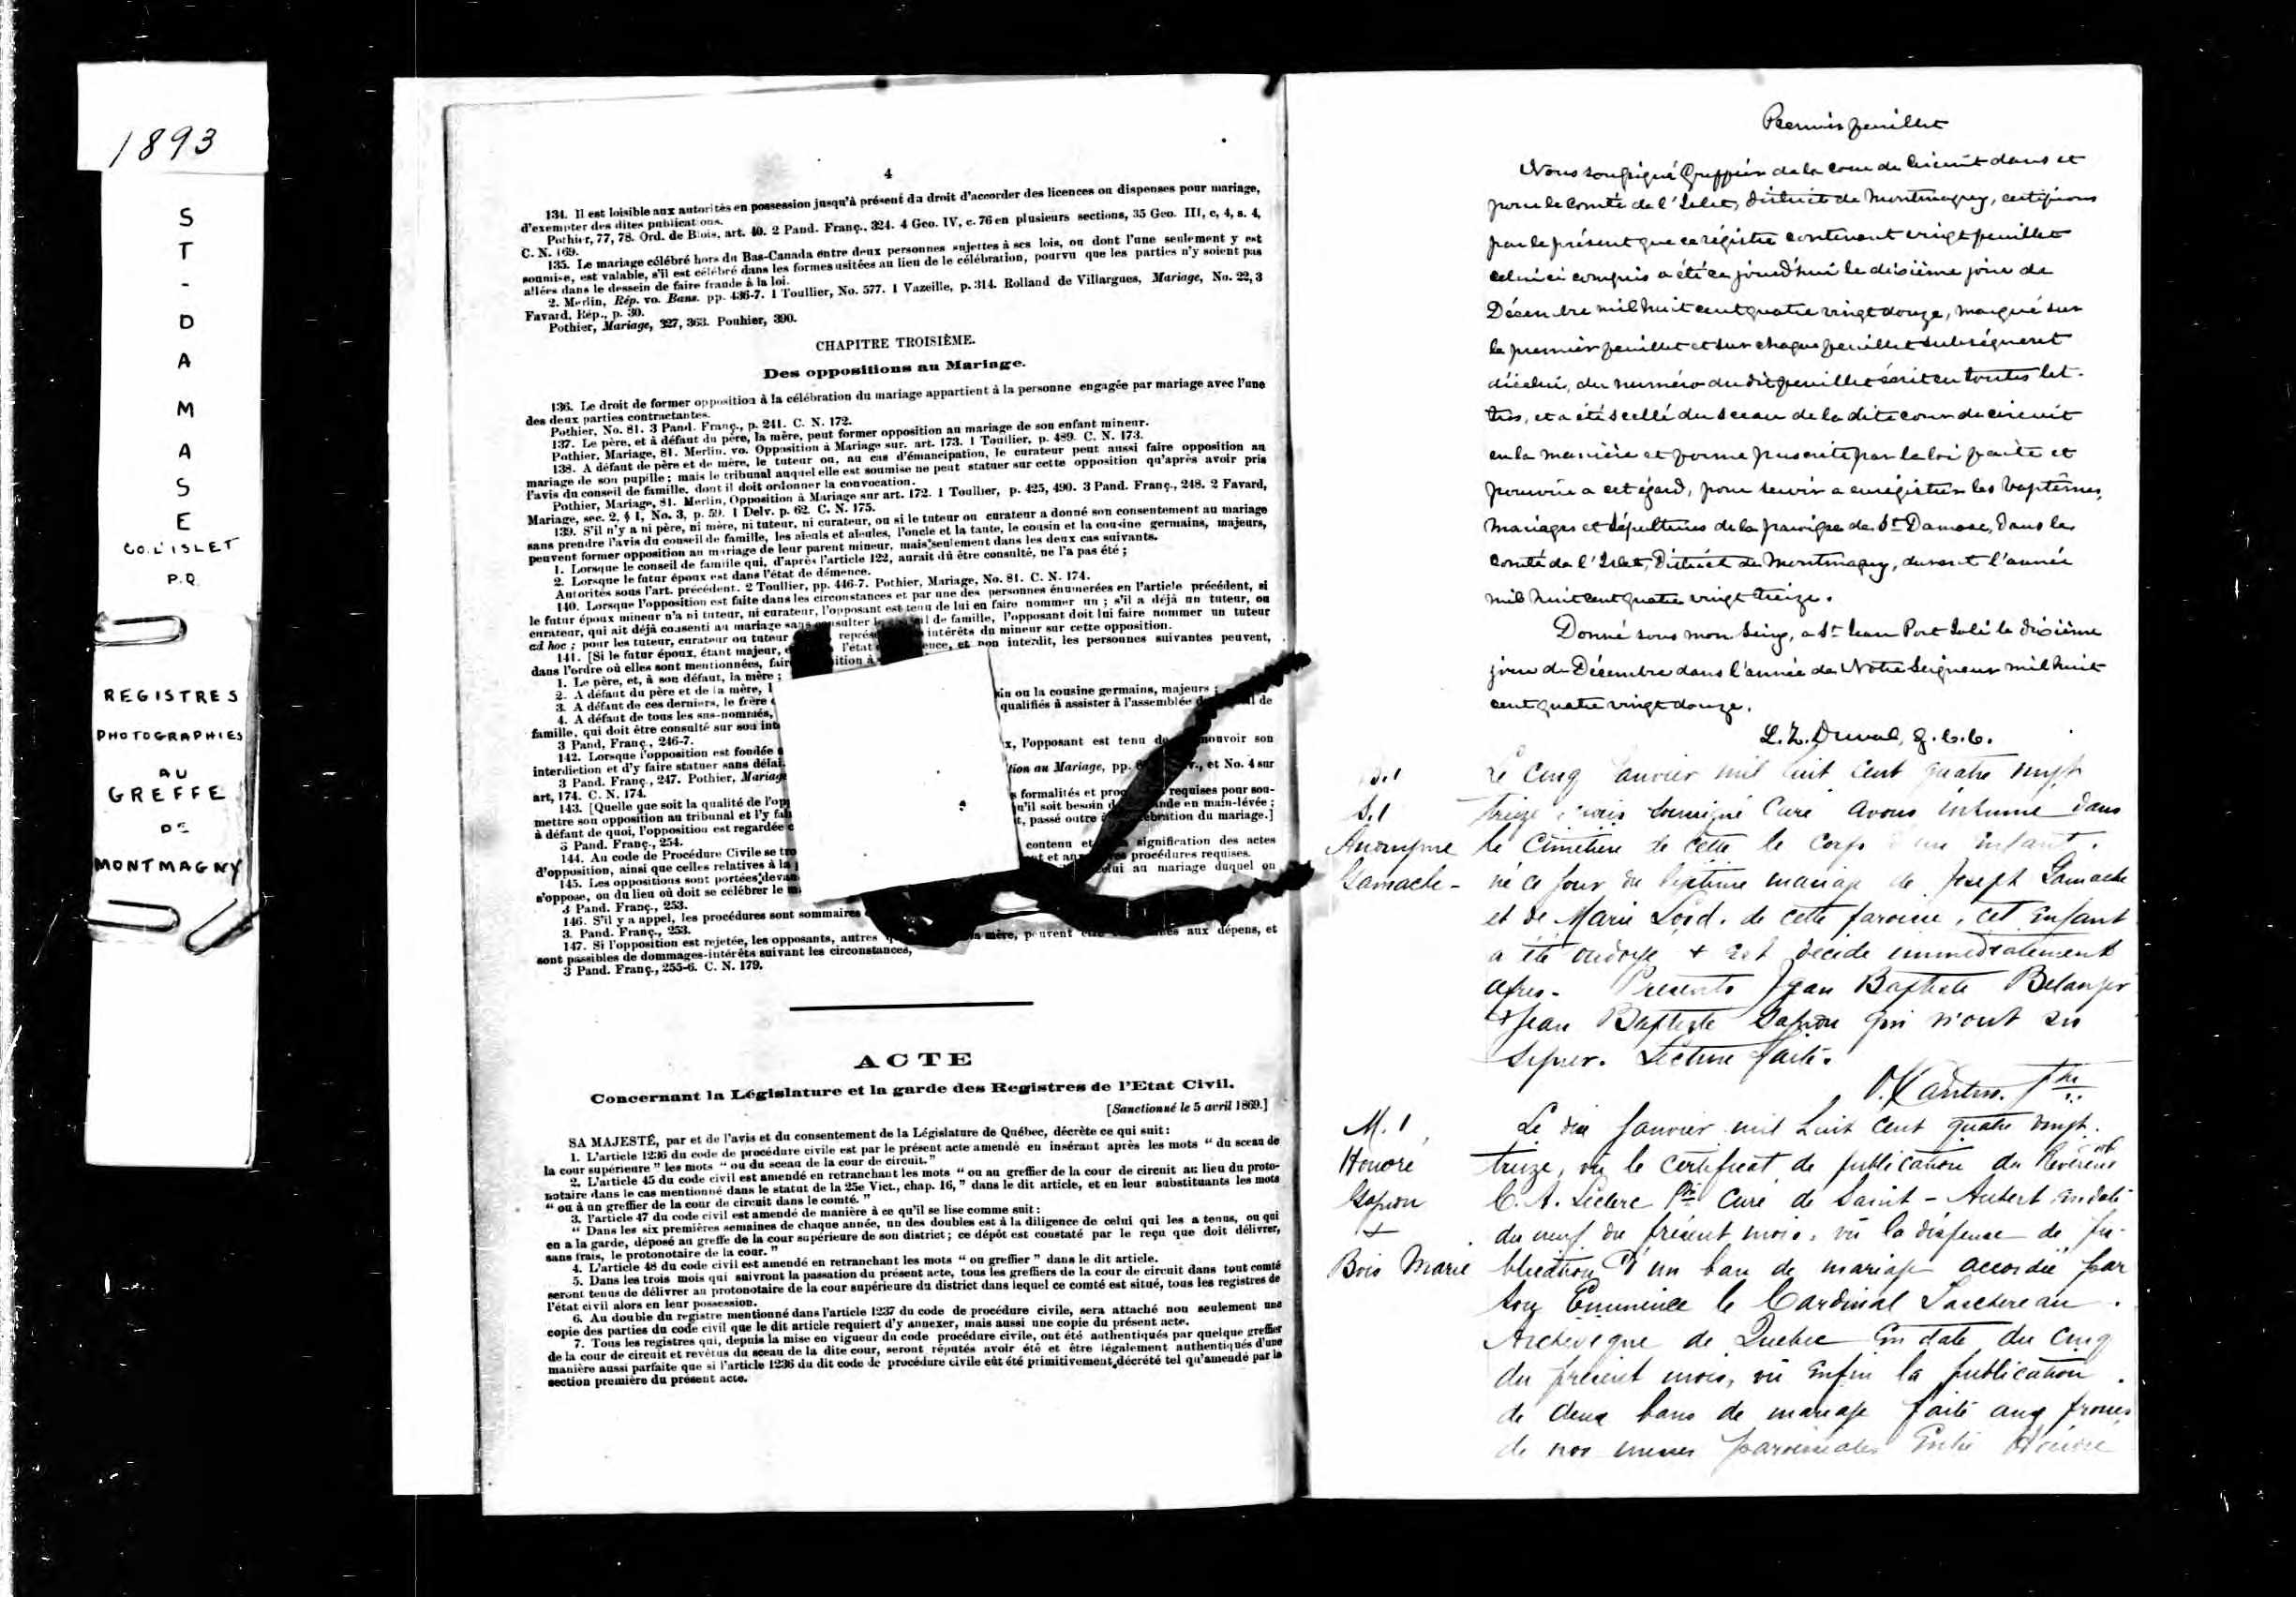 1893
S
T
-
D
A
M
A
S
E
CO. L'ISLET
P.Q.
REGISTRES
PHOTOGRAPHIES
AU
GREFFE
DE
MONTMAGNY
4
134. Il est loisible aux autorités en possession jusqu'à présent du droit d'accorder des licences ou dispenses pour mariage,
d'exempter des dites publications.
Pothier, 77, 78. Ord. de Blois, art. 40. 2 Pand. Franç., 324. 4 Geo. IV, c. 76 en plusieurs sections, 35 Geo. III, c, 4, s. 4,
C. N. 169.
135. Le mariage célébré hors du Bas-Canada entre deux personnes sujettes à ses lois, ou dont l'une seulement y est
soumise, est valable, s'il est célébré dans les formes usitées au lieu de le célébration, pourvu que les parties n'y soient pas
allées dans le dessein de faire fraude à la loi.
2. Merlin, Rép. vo. Bans. pp. 436-7. 1 Toullier, No. 577. 1 Vazeille, p. 314. Rolland de Villargues, Mariage, No. 22, 3
Favard, Rép., p. 30.
Pothier, Mariage, 327, 363. Pouhier, 390.
CHAPITRE TROISIÈME.
Des oppositions au Mariage.
136. Le droit de former opposition à la célébration du mariage appartient à la personne engagée par mariage avec l'une
des deux parties contractantes.
Pothier, No. 81. 3 Pand. Franç., p. 241. C. N. 172.
137. Le père, et à défaut du père, la mère, peut former opposition au mariage de son enfant mineur.
Pothier, Mariage, 81. Merlin. vo. Opposition à Mariage sur. art. 173. 1 Toullier, p. 489. C. N. 173.
138. A défaut de père et de mère, le tuteur ou, au cas d'émancipation, le curateur peut aussi faire opposition au
mariage de son pupille; mais le tribunal auquel elle est soumise ne peut statuer sur cette opposition qu'après avoir pris
l'avis du conseil de famille, dont il doit ordonner la convocation.
Pothier, Mariage, 81. Merlin, Opposition à Mariage sur art. 172. 1 Toullier, p. 425, 490. 3 Pand. Franç., 248. 2 Favard,
Mariage, sec. 2, § 1, No. 3, p. 59. 1 Delv. p. 62. C. N. 175.
139. S'il n'y a ni père, ni mère, ni tuteur, ni curateur, ou si le tuteur ou curateur a donné son consentement au mariage
sans prendre l'avis du conseil de famille, les aïeuls et aïeules, l'oncle et la tante, le cousin et la cousine germains, majeurs,
peuvent former opposition au mariage de leur parent mineur, mais seulement dans les deux cas suivants.
1. Lorsque le conseil de famille qui, d'après l'article 122, aurait dû être consulté, ne l'a pas été;
2. Lorsque le futur époux est dans l'état de démence.
Autorités sous l'art. précédent. 2 Toullier, pp. 446-7. Pothier, Mariage, No. 81. C. N. 174.
140. Lorsque l'opposition est faite dans les circonstances et par une des personnes énumérées en l'article précédent, si
le futur époux mineur n'a ni tuteur, ni curateur, l'opposant est tenu de lui en faire nommer un; s'il a déjà un tuteur, ou
curateur, qui ait déjà consenti au mariage sans consulter le de famille, l'opposant doit lui faire nommer un tuteur
ad hoc; pour les tuteur, curateur ou tuteur intérêts du mineur sur cette opposition.
141. [Si le futur époux, étant majeur, l'état et non interdit, les personnes suivantes peuvent,
dans l'ordre où elles sont mentionnées, faire
1. Le père, et, à son défaut, la mère;
2. A défaut du père et de la mère, ou la cousine germains, majeurs;
3. A défaut de ces derniers, le frère qualifiés à assister à l'assemblée de
4. A défaut de tous les sus-nommés,
famille, qui doit être consulté sur son
3 Pand, Franç., 246-7. l'opposant est tenu son
142. Lorsque l'opposition est fondée
interdiction et d'y faire statuer sans délai. au Mariage, pp. et No. 4 sur
3 Pand. Franç., 247. Pothier, Mariage
art, 174. C. N. 174. formalités et requises pour sou-
143. [Quelle que soit la qualité de qu'il soit besoin en main-lévée;
mettre son opposition au tribunal et l'y passé outre à la célébration du mariage.]
à défaut de quoi, l'opposition est regardée
3 Pand. Franç., 254. contenu et signification des actes
144. Au code de Procédure Civile se procédures requises.
d'opposition, ainsi que celles relatives à la celui au mariage duquel on
145. Les oppositions sont portées devant
s'oppose, ou du lieu où doit se célébrer le
3 Pand. Franç., 253.
146. S'il y a appel, les procédures sont sommaires
3. Pand. Franç., 253.
147. Si l'opposition est rejetée, les opposants, autres mère, peuvent aux dépens, et
sont passibles de dommages-intérêts suivant les circonstances,
3 Pand. Franç., 255-6. C. N. 179.
ACTE
Concernant la Législature et la garde des Registres de l'Etat Civil.
[Sanctionné le 5 avril 1869.]
SA MAJESTÉ, par et de l'avis et du consentement de la Législature de Québec, décrète ce qui suit:
1. L'article 1236 du code de procédure civile est par le présent acte amendé en insérant après les mots "du sceau de
la cour supérieure" les mots "ou du sceau de la cour de circuit."
2. L'article 45 du code civil est amendé en retranchant les mots "ou au greffier de la cour de circuit au lieu du proto-
notaire dans le cas mentionné dans le statut de la 25e Vict., chap. 16," dans le dit article, et en leur substituants les mots
"ou à un greffier de la cour de circuit dans le comté."
3. l'article 47 du code civil est amendé de manière à ce qu'il se lise comme suit:
"Dans les six premières semaines de chaque année, un des doubles est à la diligence de celui qui les a tenus, ou qui
en a la garde, déposé au greffe de la cour supérieure de son district; ce dépôt est constaté par le reçu que doit délivrer,
sans frais, le protonotaire de la cour."
4. L'article 48 du code civil est amendé en retranchant les mots "ou greffier" dans le dit article.
5. Dans les trois mois qui suivront la passation du présent acte, tous les greffiers de la cour de circuit dans tout comté
seront tenus de délivrer au protonotaire de la cour supérieure du district dans lequel ce comté est situé, tous les registres de
l'état civil alors en leur possession.
6. Au double du registre mentionné dans l'article 1237 du code de procédure civile, sera attaché non seulement une
copie des parties du code civil que le dit article requiert d'y annexer, mais aussi une copie du présent acte.
7. Tous les registres qui, depuis la mise en vigueur du code procédure civile, ont été authentiqués par quelque greffier
de la cour de circuit et revêtus du sceau de la dite cour, seront réputés avoir été et être légalement authentiqués d'une
manière aussi parfaite que si l'article 1236 du dit code de procédure civile eût été primitivement décrété tel qu'amendé par la
section première du présent acte.
Premier feuillet
Nous soussigné Greffier de la cour de Circuit dans et
pour le Comté de l'Islet, District de Montmagny, certifions
par le présent que ce régistre contenant vingt feuillet
celui ci compris a été ce jourd'hui le dixième jour de
Décembre mil huit cent quatre vingt douze, marqué sur
le premier feuillet et sur chaque feuillet subséquent
d'icelui, du numéro du dit feuillet écrit en toutes let-
tres, et a été scellé du sceau de la dite cour de circuit
en la manière et forme prescrite par la loi faite et
pourvue a cet égard, pour servir a enrégistrer les baptêmes,
mariages et sépultures de la paroisse de St Damase, dans le
comté de l'Islet, District de Montmagny, durant l'année
mil huit cent quatre vingt treize.
Donné sous mon seing, a St Jean Port Joli le dixième
jour de Décembre dans l'année de Notre Seigneur mil huit
cent quatre vingt douze.
L. Z. Duval, g. c. c.
S. 1
Anonyme
Gamache -
Le cinq Janvier mil huit cent quatre vingt
treize, nous soussigné Curé avons inhumé dans
le Cimetière de cette le corps d'un enfant.
né ce jour du légitime mariage de Joseph Gamache
et de Marie Lord. de cette paroisse, cet enfant
a été ondoyé + est décédé immédiatement
après. Présents Jean Baptiste Belanger
+ Jean Baptiste Gagnon qui n'ont su
signer. Lecture faite.
Ptre
M. 1
Honoré
Gagnon
+
Bois Marie
Le dix Janvier mil huit cent quatre vingt.
treize, vu le certificat de publication du Révérend
C. A. Leclerc Ptre Curé de Saint-Aubert en date
du neuf du présent mois, vu la dispense de pu-
blication d'un ban de mariage accordée par
Son Eminence le Cardinal Taschereau.
Archevêque de Québec en date du cinq
du présent mois, vu enfin la publication
de deux bans de mariage faite aux prones
de nos messes paroissiales entre Honoré